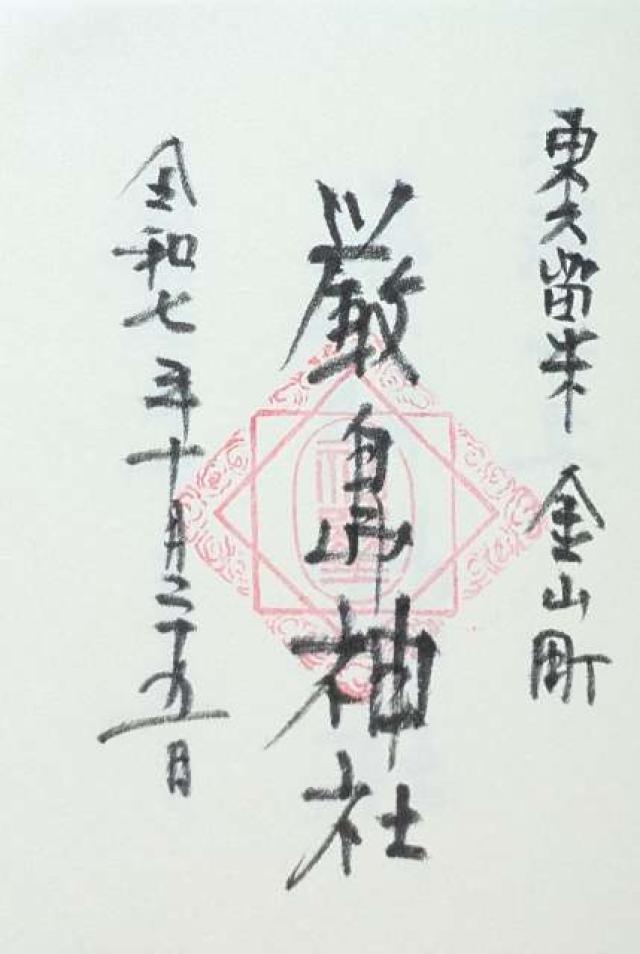 東久留米 金山町
厳島神社
令和七年十月二十五日